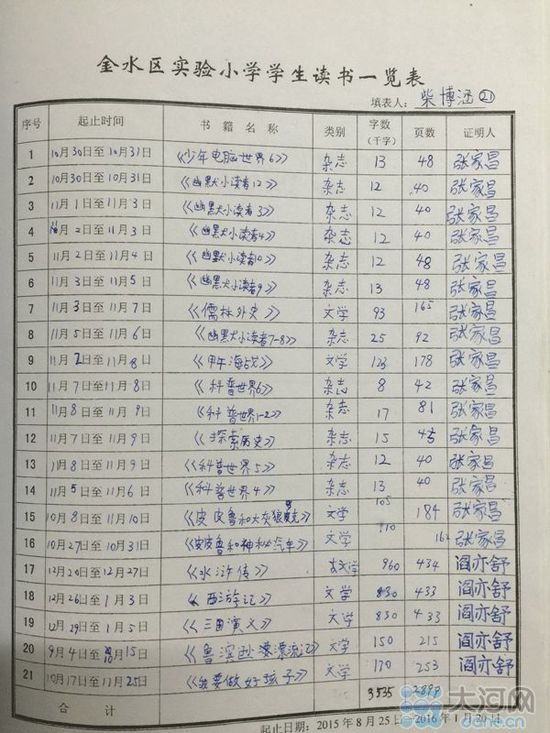 金水区实验小学学生读书一览表
填表人：柴博涵 21
序号 起止时间 书籍名称 类别 字数（千字） 页数 证明人
1 10月30日至10月31日 《少年电脑世界6》 杂志 13 48 张家昌
2 10月30日至10月31日 《幽默小读者12》 杂志 12 40 张家昌
3 11月1日至11月3日 《幽默小读者3》 杂志 12 40 张家昌
4 11月2日至11月3日 《幽默小读者4》 杂志 12 40 张家昌
5 11月2日至11月4日 《幽默小读者10》 杂志 12 48 张家昌
6 11月3日至11月5日 《幽默小读者9》 杂志 13 48 张家昌
7 11月3日至11月7日 《儒林外史》 文学 93 165 张家昌
8 11月5日至11月6日 《幽默小读者7-8》 杂志 25 92 张家昌
9 11月2日至11月8日 《甲午海战》 文学 123 178 张家昌
10 11月7日至11月8日 《科普世界6》 杂志 8 42 张家昌
11 11月8日至11月9日 《科普世界1-2》 杂志 17 81 张家昌
12 11月7日至11月9日 《探索历史》 杂志 15 45 张家昌
13 11月8日至11月9日 《科普世界5》 杂志 12 40 张家昌
14 11月5日至11月6日 《科普世界4》 杂志 13 40 张家昌
15 10月8日至11月10日 《皮皮鲁和大灰狼》 文学 105 184 张家昌
16 10月27日至10月31日 《皮皮鲁和神秘汽车》 文学 110 162 张家昌
17 12月20日至12月27日 《水浒传》 文学 960 434 阎亦舒
18 12月26日至1月3日 《西游记》 文学 830 433 阎亦舒
19 12月29日至1月5日 《三国演义》 文学 830 433 阎亦舒
20 9月4日至15日 《鲁滨孙漂流记》 文学 150 215 阎亦舒
21 10月17日至11月25日 《我要做好孩子》 文学 170 253 阎亦舒
合计 3535 2898
起止日期：2015年8月25日—2016年1月20日
大河网
dahe.cn